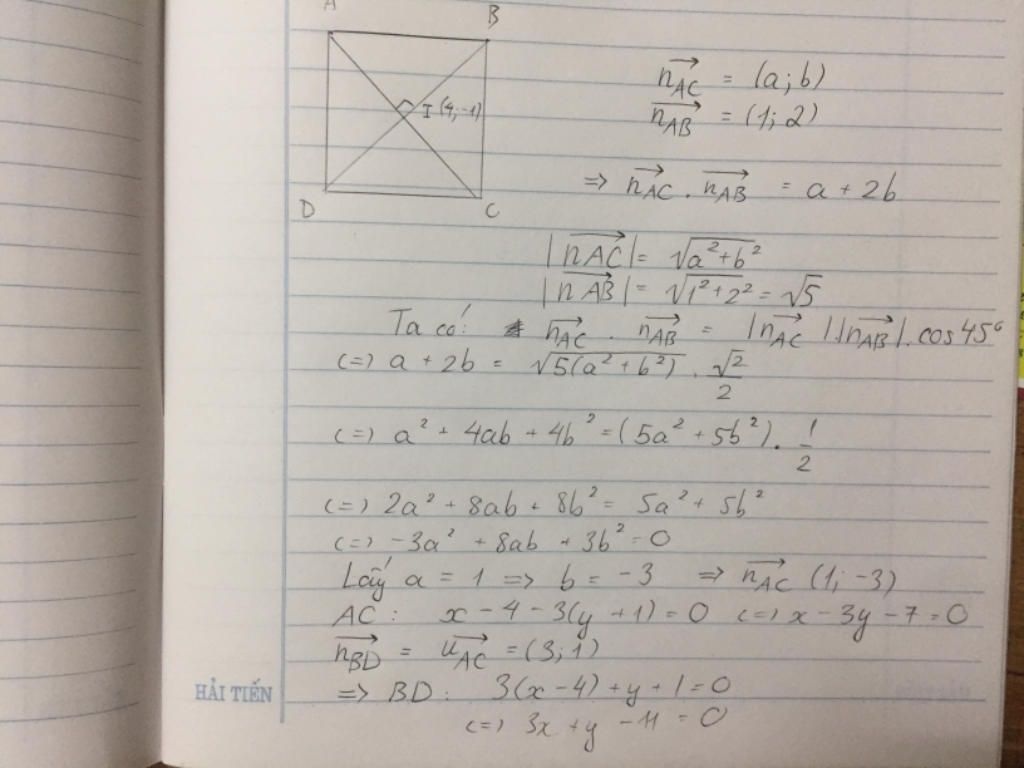 A
B
I (4; -1)
D
C
→n_AC = (a; b)
→n_AB = (1; 2)
=> →n_AC . →n_AB = a + 2b
|→nAC| = √(a² + b²)
|→nAB| = √(1² + 2²) = √5
Ta có: →n_AC . →n_AB = |→n_AC|.|→n_AB|. cos 45°
(=) a + 2b = √(5(a² + b²)) . √2/2
(=) a² + 4ab + 4b² = (5a² + 5b²) . 1/2
(=) 2a² + 8ab + 8b² = 5a² + 5b²
(=) -3a² + 8ab + 3b² = 0
Lấy a = 1 => b = -3 => →n_AC (1; -3)
AC: x - 4 - 3(y + 1) = 0 (=) x - 3y - 7 = 0
→n_BD = →u_AC = (3; 1)
=> BD: 3(x - 4) + y + 1 = 0
(=) 3x + y - 11 = 0
HẢI TIẾN